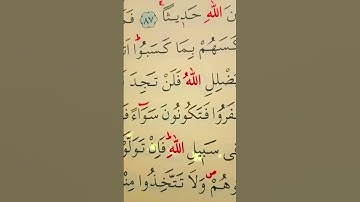 نَ اللّٰهِ حَدٖيثًا ﴿٨٧﴾ فَمَ
كَسَهُمْ بِمَا كَسَبُواۜ اَتُ
ضْلِلِ اللّٰهُ فَلَنْ تَجِدَ
فَرُوا فَتَكُونُونَ سَوَٓاءً فَ
فٖى سَبٖيلِ اللّٰهِۜ فَاِنْ تَوَلَّوْ
وهُمْۖ وَلَا تَتَّخِذُوا مِنْ